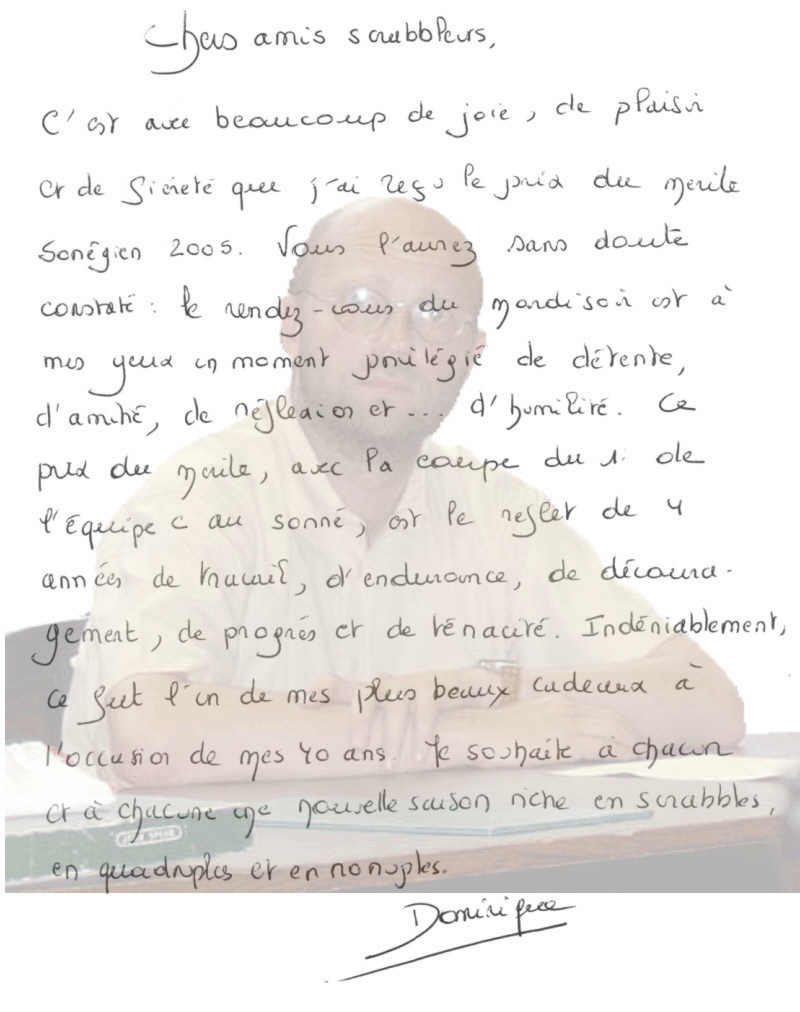 Chers amis scrabbleurs,
C'est avec beaucoup de joie, de plaisir
et de fierté que j'ai reçu le prix du mérite
Sonégien 2005. Vous l'aurez sans doute
constaté : le rendez-vous du mardi soir est à
mes yeux un moment privilégié de détente,
d'amitié, de réflexion et ... d'humilité. Ce
prix du mérite, avec la coupe du 1. de
l'équipe C au sonné, est le reflet de 4
années de travail, d'endurance, de découra-
gement, de progrès et de ténacité. Indéniablement,
ce fut l'un de mes plus beaux cadeaux à
l'occasion de mes 40 ans. Je souhaite à chacun
et à chacune une nouvelle saison riche en scrabbles,
en quadruples et en nonuples.
Dominique